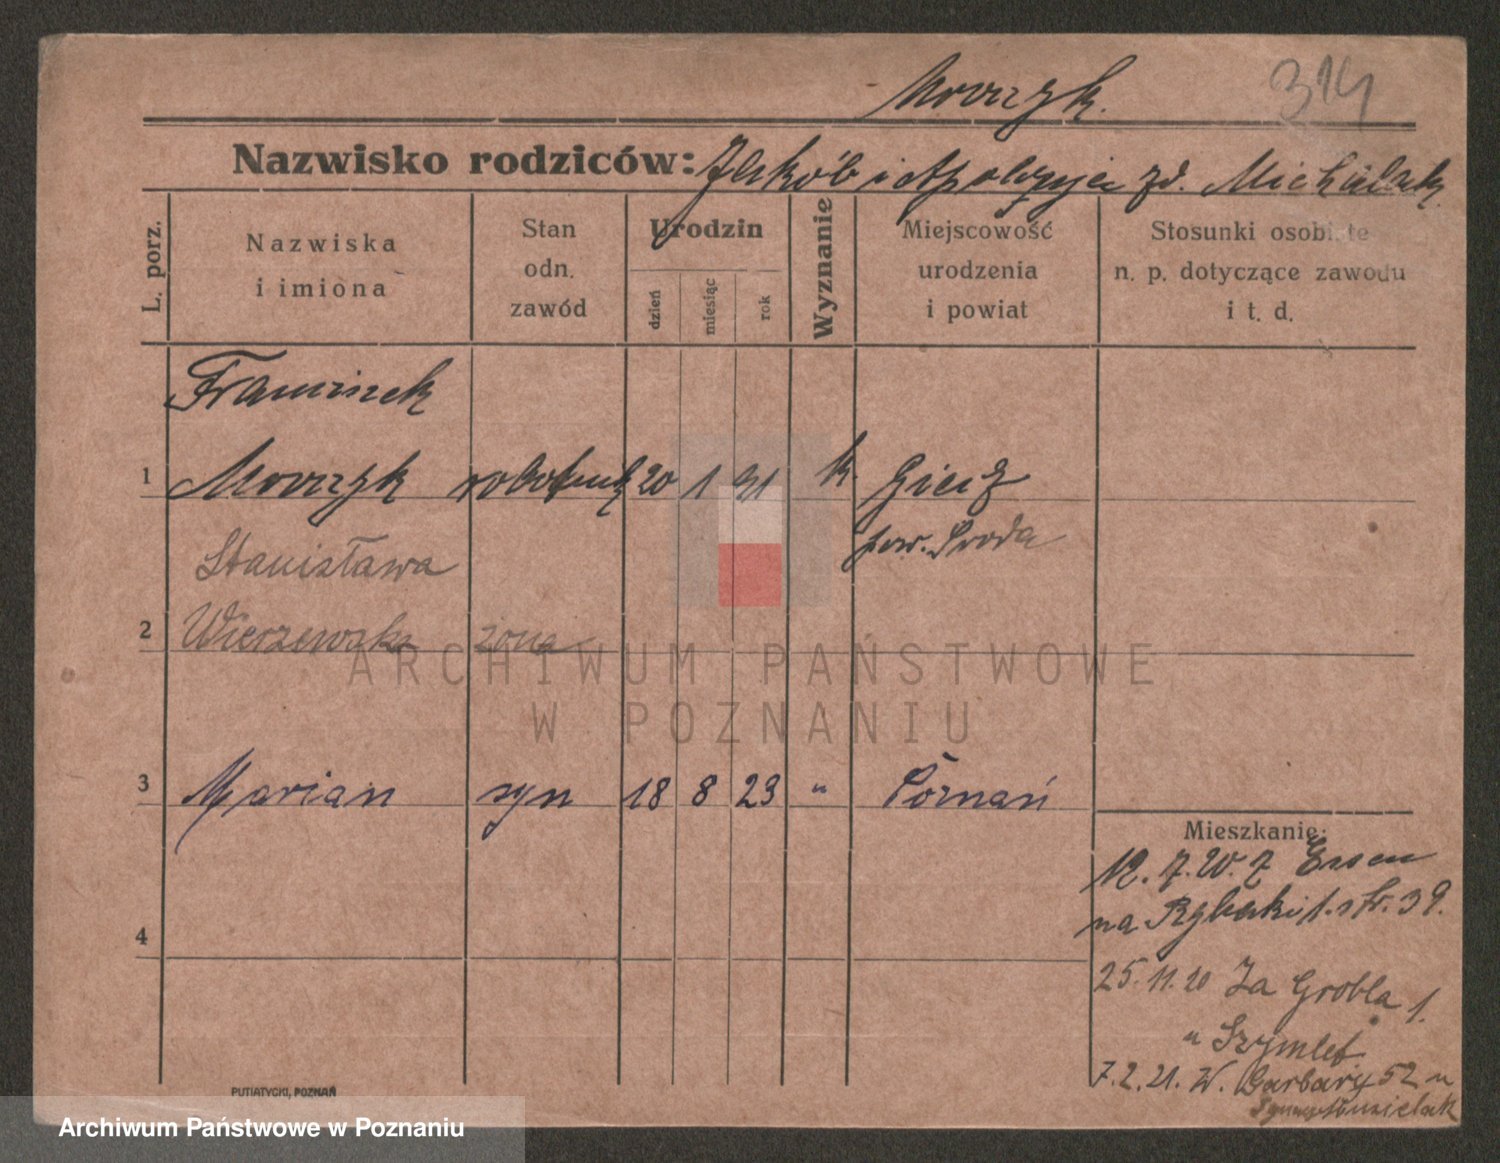 Morczyk.
314
Nazwisko rodziców: Jakób i Apolonja zd. Michalak.
L. porz.
Nazwiska i imiona
Stan odn. zawód
Urodzin
dzień
miesiąc
rok
Wyznanie
Miejscowość urodzenia i powiat
Stosunki osobiste n. p. dotyczące zawodu i t. d.
Franciszek
1 Morczyk robotnik 20 1 91 k. Giecz
pow. Środa
Stanisława
2 Wierzewska żona
3 Marian syn 18 8 23 " Poznań
4
Mieszkanie:
12. 7. 20. z Essen
na Rybaki str. 39.
25. 11. 20 Za Groblą 1.
u Szymlet
7. 2. 21. W. Garbary 52 u
PUTIATYCKI, POZNAŃ
ARCHIWUM PAŃSTWOWE
W POZNANIU
Archiwum Państwowe w Poznaniu